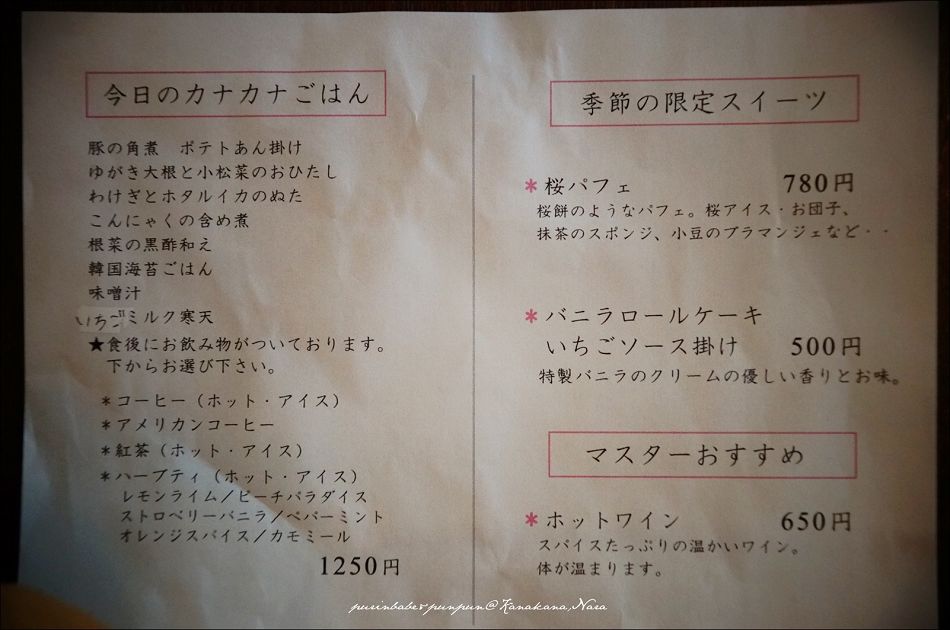 今日のカナカナごはん
豚の角煮　ポテトあん掛け
ゆがき大根と小松菜のおひたし
わけぎとホタルイカのぬた
こんにゃくの含め煮
根菜の黒酢和え
韓国海苔ごはん
味噌汁
いちごミルク寒天
★食後にお飲み物がついております。
下からお選び下さい。
＊コーヒー（ホット・アイス）
＊アメリカンコーヒー
＊紅茶（ホット・アイス）
＊ハーブティ（ホット・アイス）
レモンライム／ピーチパラダイス
ストロベリーバニラ／ペパーミント
オレンジスパイス／カモミール
1250円
季節の限定スイーツ
＊桜パフェ 780円
桜餅のようなパフェ。桜アイス・お団子、
抹茶のスポンジ、小豆のブラマンジェなど・・
＊バニラロールケーキ
いちごソース掛け 500円
特製バニラのクリームの優しい香りとお味。
マスターおすすめ
＊ホットワイン 650円
スパイスたっぷりの温かいワイン。
体が温まります。
purinbabe&punpun@Kanakana,Nara